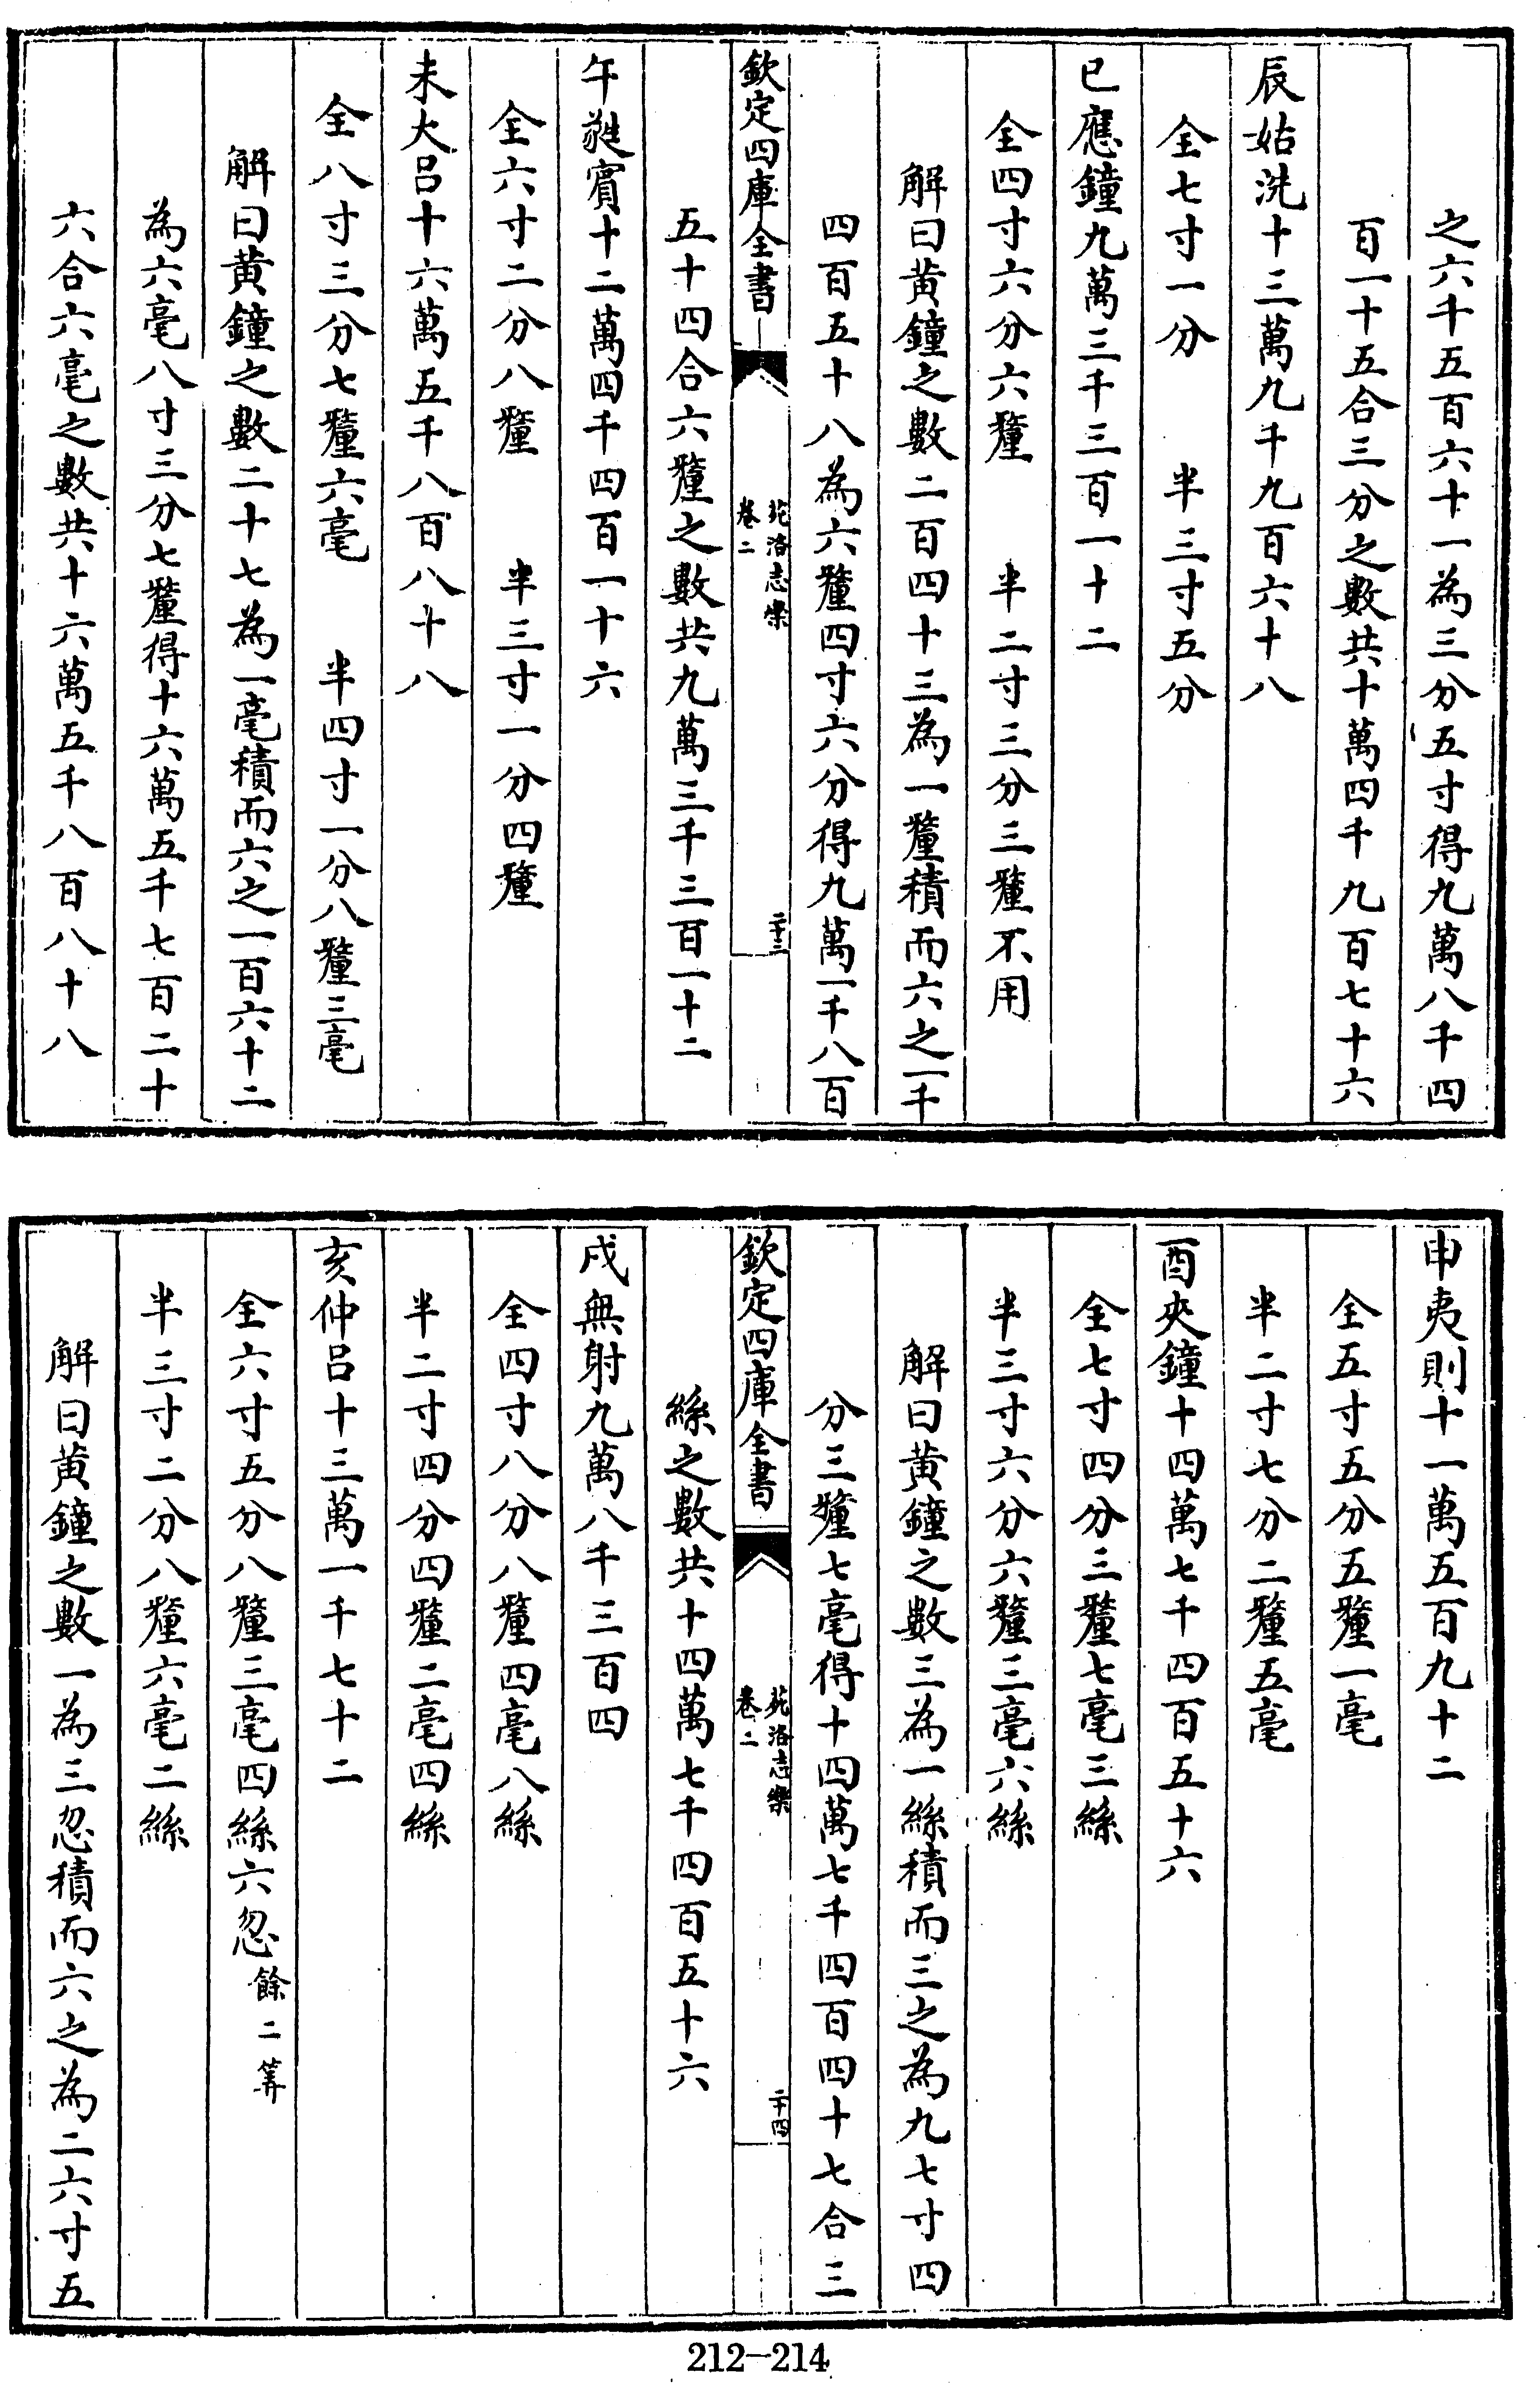 之六千五百六十一為三分五寸得九萬八千四
百一十五合三分之數共十萬四千九百七十六
辰姑洗十三萬九千九百六十八
全七寸一分 半三寸五分
已應鐘九萬三千三百一十二
全四寸六分六釐 半二寸三分三釐不用
解曰黃鐘之數二百四十三為一釐積而六之一千
四百五十八為六釐四寸六分得九萬一千八百
欽定四庫全書
苑洛志樂
卷二
二十三
五十四合六釐之數共九萬三千三百一十二
午蕤賓十二萬四千四百一十六
全六寸二分八釐 半三寸一分四釐
未大呂十六萬五千八百八十八
全八寸三分七釐六毫 半四寸一分八釐三毫
解曰黃鐘之數二十七為一毫積而六之一百六十二
為六毫八寸三分七釐得十六萬五千七百二十
六合六毫之數共十六萬五千八百八十八
申夷則十一萬五百九十二
全五寸五分五釐一毫
半二寸七分二釐五毫
酉夾鐘十四萬七千四百五十六
全七寸四分三釐七毫三絲
半三寸六分六釐三毫六絲
解曰黃鐘之數三為一絲積而三之為九七寸四
分三釐七毫得十四萬七千四百四十七合三
欽定四庫全書
苑洛志樂
卷二
二十四
絲之數共十四萬七千四百五十六
戌無射九萬八千三百四
全四寸八分八釐四毫八絲
半二寸四分四釐二毫四絲
亥仲呂十三萬一千七十二
全六寸五分八釐三毫四絲六忽餘二筭
半三寸二分八釐六毫二絲
解曰黃鐘之數一為三忽積而六之為二六寸五
212-214